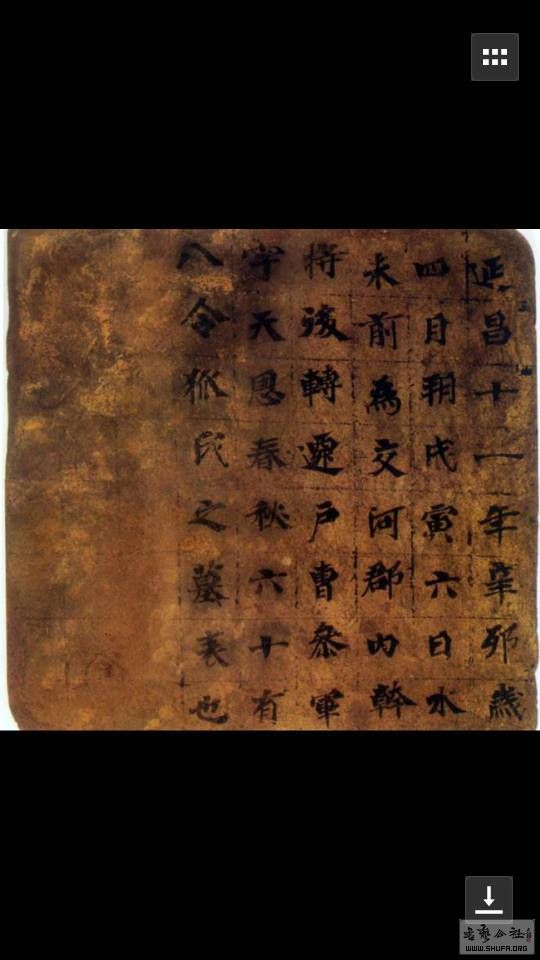 延昌十一年辛卯歲
四月朔戊寅六日水
未前爲交河郡內幹
將後轉遷戶曹參軍
字天恩春秋六十有
八令狐氏之墓表也
书艺公社
WWW.SHUFA.ORG